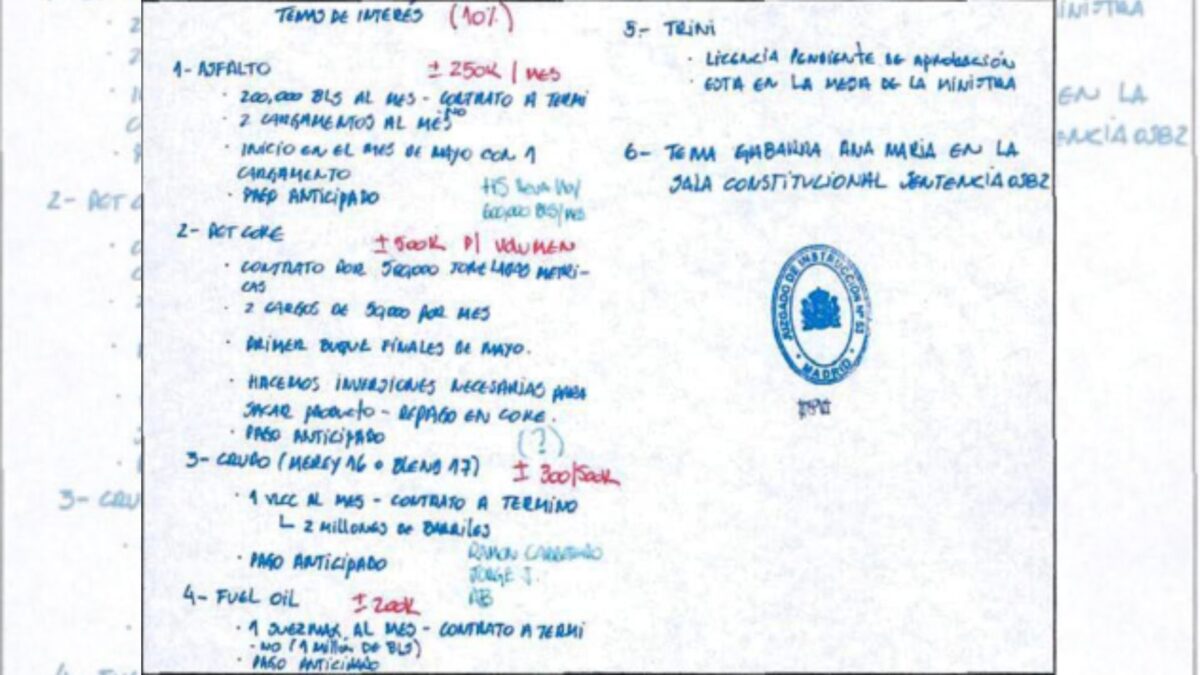 TEMAS DE INTERÉS (10%)
1- ASFALTO ± 250K / MES
· 200,000 BLS AL MES - CONTRATO A TERMI
NO
· 2 CARGAMENTOS AL MES
· INICIO EN EL MES DE MAYO CON 1
CARGAMENTO
· PAGO ANTICIPADO
600,000 BLS/MES
2- PET COKE ± 500K P/ VOLUMEN
· CONTRATO POR 500,000 TONELADAS METRI-
CAS
· 2 CARGOS DE 50,000 POR MES
· PRIMER BUQUE FINALES DE MAYO.
· HACEMOS INVERSIONES NECESARIAS PARA
SACAR PRODUCTO - REPAGO EN COKE.
· PAGO ANTICIPADO
(?)
3- CRUDO (MEREY 16 o BLEND 17) ± 300/500K
· 1 VLCC AL MES - CONTRATO A TERMINO
2 MILLONES DE BARRILES
· PAGO ANTICIPADO
RAMON CARRETERO
JORGE J.
AB
4- FUEL OIL ± 200K
· 1 SUEZMAX AL MES - CONTRATO A TERMI
- NO (1 MILLON DE BLS)
· PAGO ANTICIPADO
5.- TRINI
· LICENCIA PENDIENTE DE APROBACIÓN
· ESTA EN LA MESA DE LA MINISTRA
6- TEMA GABARRA ANA MARIA EN LA
SALA CONSTITUCIONAL SENTENCIA 0382
JUZGADO DE INSTRUCCIÓN Nº
MADRID
INISTRA
EN LA
ENCIA 0382
2- PET C
3- CRU